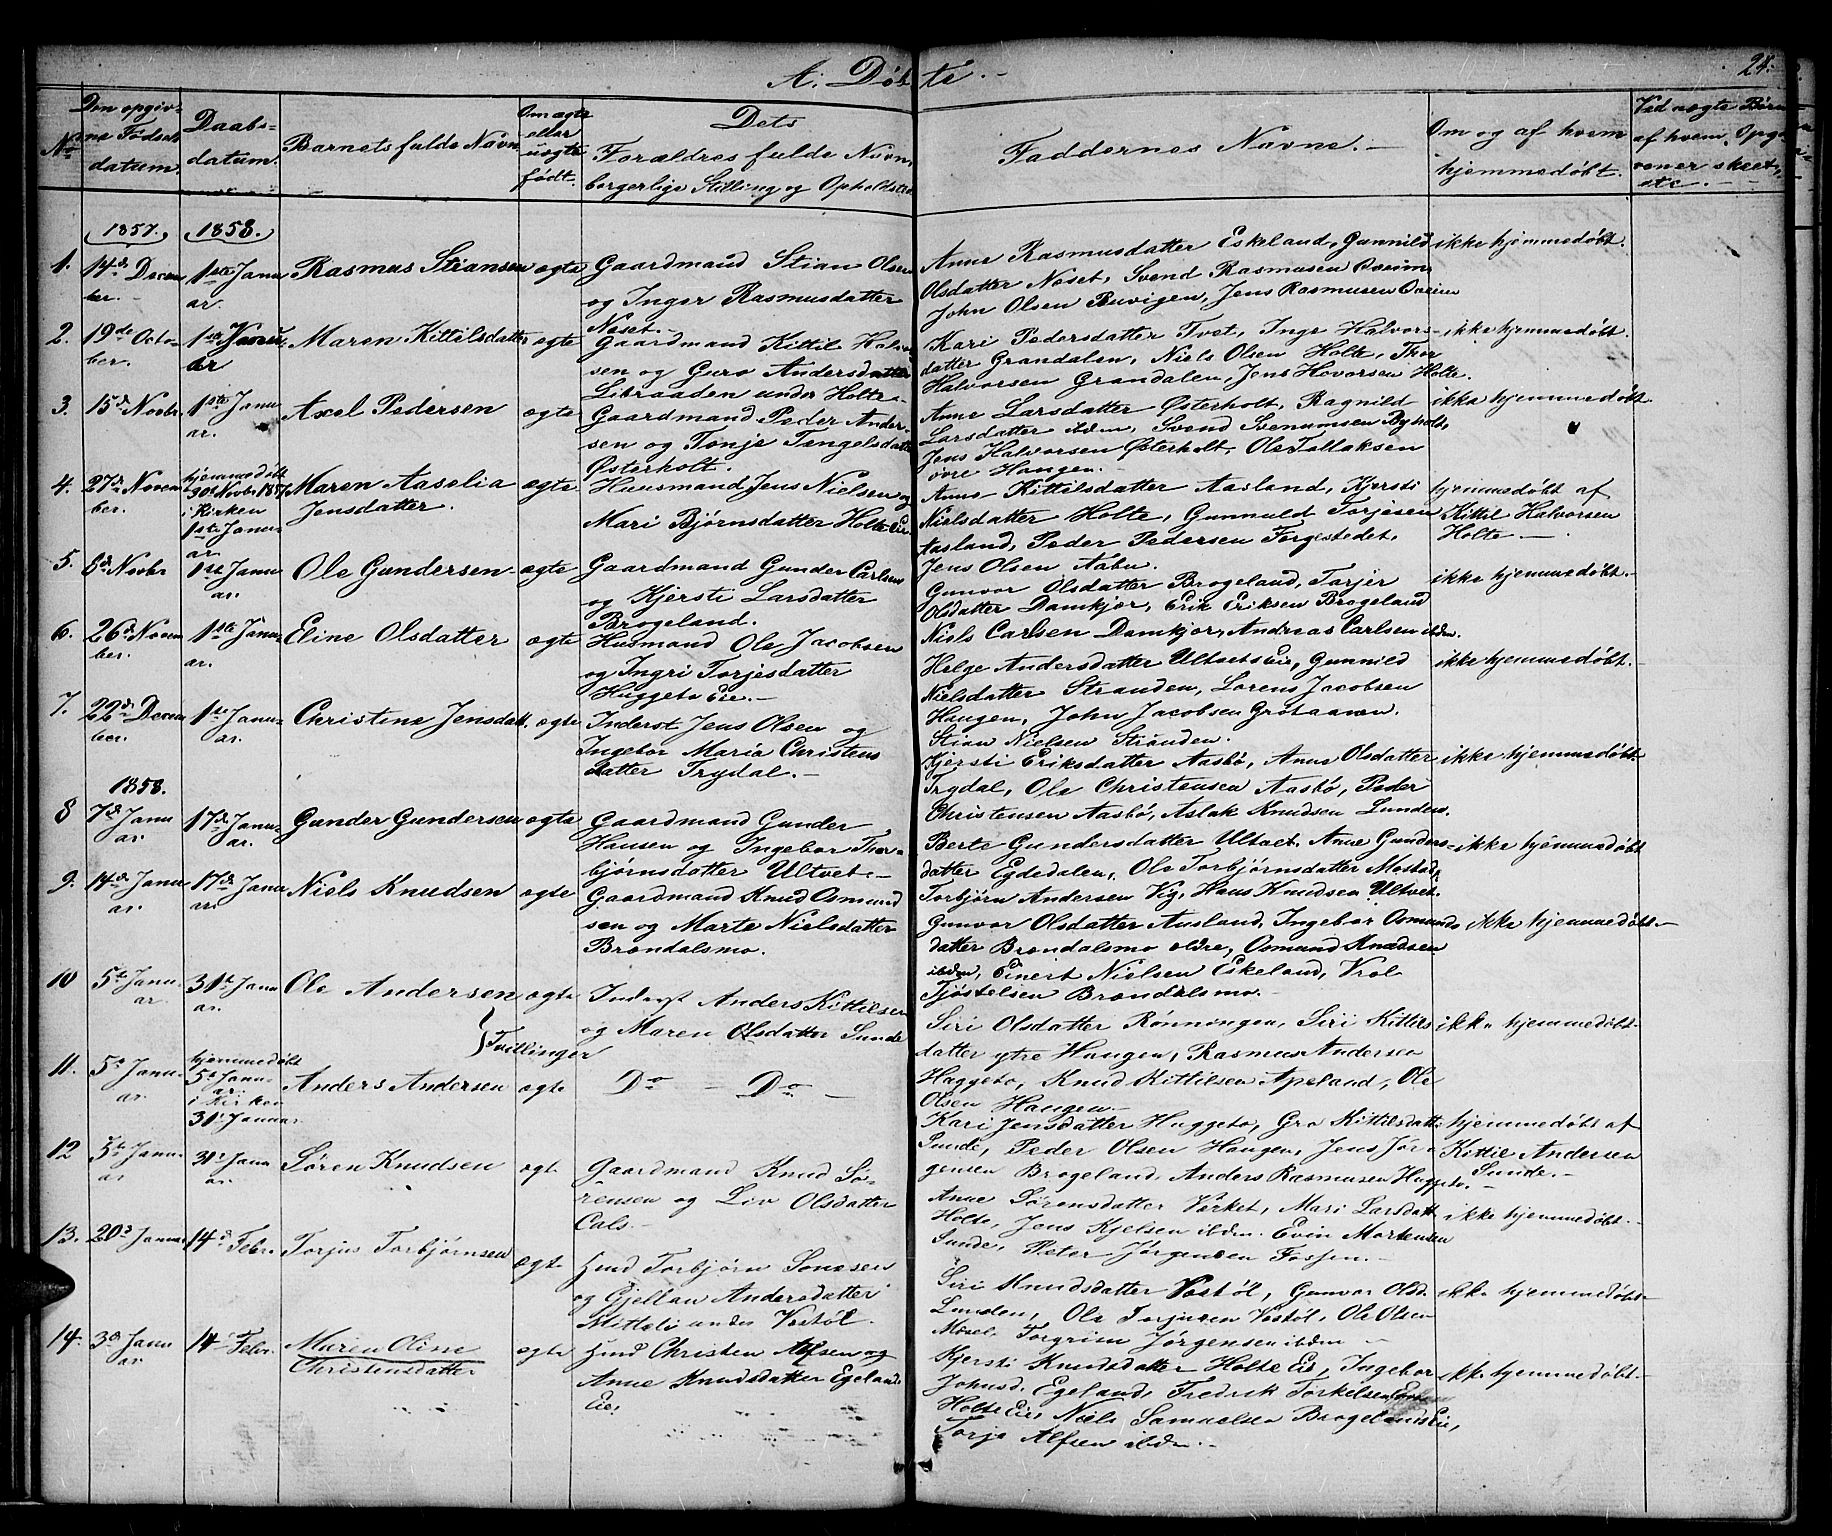 A. Døbte.
24.
No
Den opgivne Fødselsdatum.
Daabsdatum.
Barnets fulde Navn
Om ægte eller uægte født.
Dets Forældres fulde Navn, borgerlige Stilling og Opholdsted
Faddernes Navne.
Om og af hvem hjemmedøbt.
Ved uægte Børn af hvem Opgivener skeet, etc.
1857. 1858.
1. 14d December. 1ste Januar. Rasmus Stiansen ægte
Gaardmand Stian Olsen
og Inger Rasmusdatter
Næset.
Anne Rasmusdatter Eskeland, Gunnild
Olsdatter Næset, Svend Rasmusen
John Olsen Buvigen, Jens Rasmusen
ikke hjemmedøbt.
2. 19de October. 1ste Januar Maren Kittilsdatter ægte
Gaardmand Kittil Halvorsen og Guro Andersdatter
Libraaden under Holte
Kari Pedersdatter Tvet, Inge Halvorsdatter Grandalen, Niels Olsen Holte, Thor
Halvorsen Grandalen, Jens Hovorsen Holte.
ikke hjemmedøbt.
3. 15d Novbr 1ste Januar. Axel Pedersen ægte
Gaardmand Peder Andersen og Tonje Tengelsdatter
Østerholt.
Anne Larsdatter Østerholt, Ragnild
Larsdatter ibdm, Svend Svenumsen Byholt,
Jens Halvorsen Østerholt, Ole Tallaksen
øvre Haugen.
ikke hjemmedøbt.
4. 27d November. hjemmedøbt 30te Novbr 1857 i Kirken 1ste Januar Maren Aaselia
Jensdatter. ægte
Huusmand Jens Nielsen og
Mari Bjørnsdatter Holte Eie
Anne Kittilsdatter Aasland, Kjersti
Nielsdatter Holte, Gunnuld Torjesen
Aasland, Peder Pedersen Forgestedet,
Jens Olsen Aabu.
hjemmedøbt af
Kittil Halvorsen
Holte
5. 8d Novbr 1st Januar. Ole Gundersen ægte
Gaardmand Gunder Carlsen
og Kjersti Larsdatter
Brogeland.
Gunvor Olsdatter Brogeland, Torjer
Olsdatter Damkjør, Erik Eriksen Brogeland
Niels Carlsen Damkjør, Andreas Carlsen ibdm.
ikke hjemmedøbt.
6. 26d November. 1ste Januar. Eline Olsdatter ægte
Husmand Ole Jacobsen
og Ingri Torjesdatter
Huggeto Eie.
Helge Andersdatter Ultvets Eie, Gunnild
Nielsdatter Stranden, Lorens Jacobsen
Haugen, John Jacobsen
Stian Nielsen Stranden.
ikke hjemmedøbt.
7. 22d December. 1ste Januar. Christine Jensdat. ægte
Inderst Jens Olsen og
Ingebor Maria Christensdatter Trydal.
Kjersti Eriksdatter Aasbø, Anne Olsdatter
Trydal, Ole Christensen Aasbø, Peder
Christensen Aasbø, Aslak Knudsen Lunden.
ikke hjemmedøbt.
1858.
8 7d Januar. 17d Januar. Gunder Gundersen ægte
Gaardmand Gunder
Hansen og Ingebor Thorbjørnsdatter Ultvet.
Berte Gundersdatter Ultvet, Anne Gundersdatter Egdedalen, Ole Torbjørnsdatter
Torbjørn Andersen Vig, Hans Knudsen Ultvet.
ikke hjemmedøbt
9. 14d Januar. 17d Januar. Niels Knudsen ægte
Gaardmand Knud Osmundsen og Marte Nielsdatter
Brøndalsmo.
Gunvor Olsdatter Ausland, Ingebor Osmundsdatter Brøndalsmo øldre, Osmund Knudsen
ibdm, Einert Nielsen Eskeland, Vrol
Tjøstelsen Brøndalsmo.
ikke hjemmedøbt.
10 5t Januar. 31t Januar. Ole Andersen ægte
Inderst Anders Kittilsen
og Maren Olsdatter Sunde
Siri Olsdatter Rønningen, Siri Kittilsdatter ytre Haugen, Rasmus Andersen
Haggeto, Knud Kittilsen Apeland, Ole
Olsen Haugen.
ikke hjemmedøbt.
} Tvillinger
11. 5t Januar. hjemmedøbt 5t Januar i Kirken 31t Januar. Anders Andersen ægte
Do — Do.
Kari Jensdatter Huggeto, Gro Kittilsdatt.
Sunde, Peder Olsen Haugen, Jens Jørgensen Brogeland, Anders Rasmusen Huggeto.
hjemmedøbt af
Kittil Andersen
Sunde.
12 5t Januar 31t Januar. Søren Knudsen ægte
Gaardmand Knud Sørensen og Liv Olsdatter
Cals.
Anne Sørensdatter Værket, Mari Larsdatt.
Holte, Jens Kjelsen ibdm. Even Mortensen
Sunde, Peter Jørgensen Fossen.
ikke hjemmedøbt.
13. 20d Januar 14d Febr. Torjus Torbjørnsen ægte
Hmd Torbjørn Sonesen
og Gjellau Andersdatter
Mittelie under Vestøl.
Siri Knudsdatter Vestøl, Gunvor Olsd.
Lunden, Ole Torjusen Vestøl, Ole Olsen
Mæsel, Torgrim Jørgensen ibdm
ikke hjemmedøbt.
14. 3d Januar 14d Febr. Maren Oline
Christensdatter ægte
Hmd Christen Alfsen og
Anne Knudsdatter Egelands
Eie.
Kjersti Knudsdatter Holte Eie, Ingebor
Johnsd. Egeland, Fredrik Torkelsen
Holte Eie, Niels Samuelsen Brogelands Eie,
Torje Alfsen ibdm.
ikke hjemmedøbt.